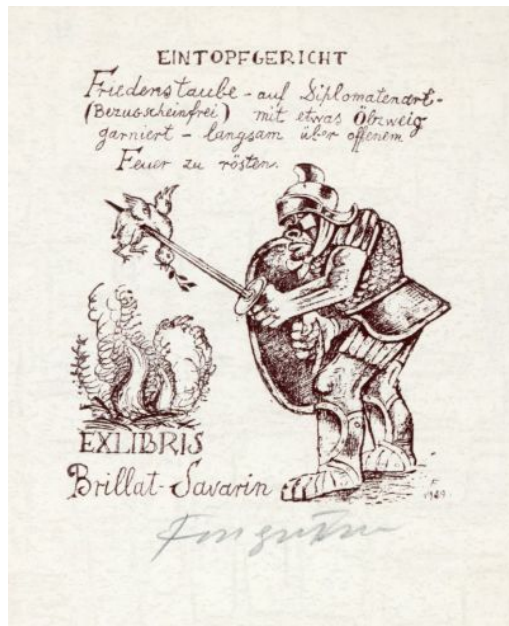 EINTOPFGERICHT
Friedenstaube - auf Diplomatenart -
(Bezugscheinfrei) mit etwas Ölzweig
garniert - langsam über offenem
Feuer zu rösten.
EXLIBRIS
Brillat-Savarin